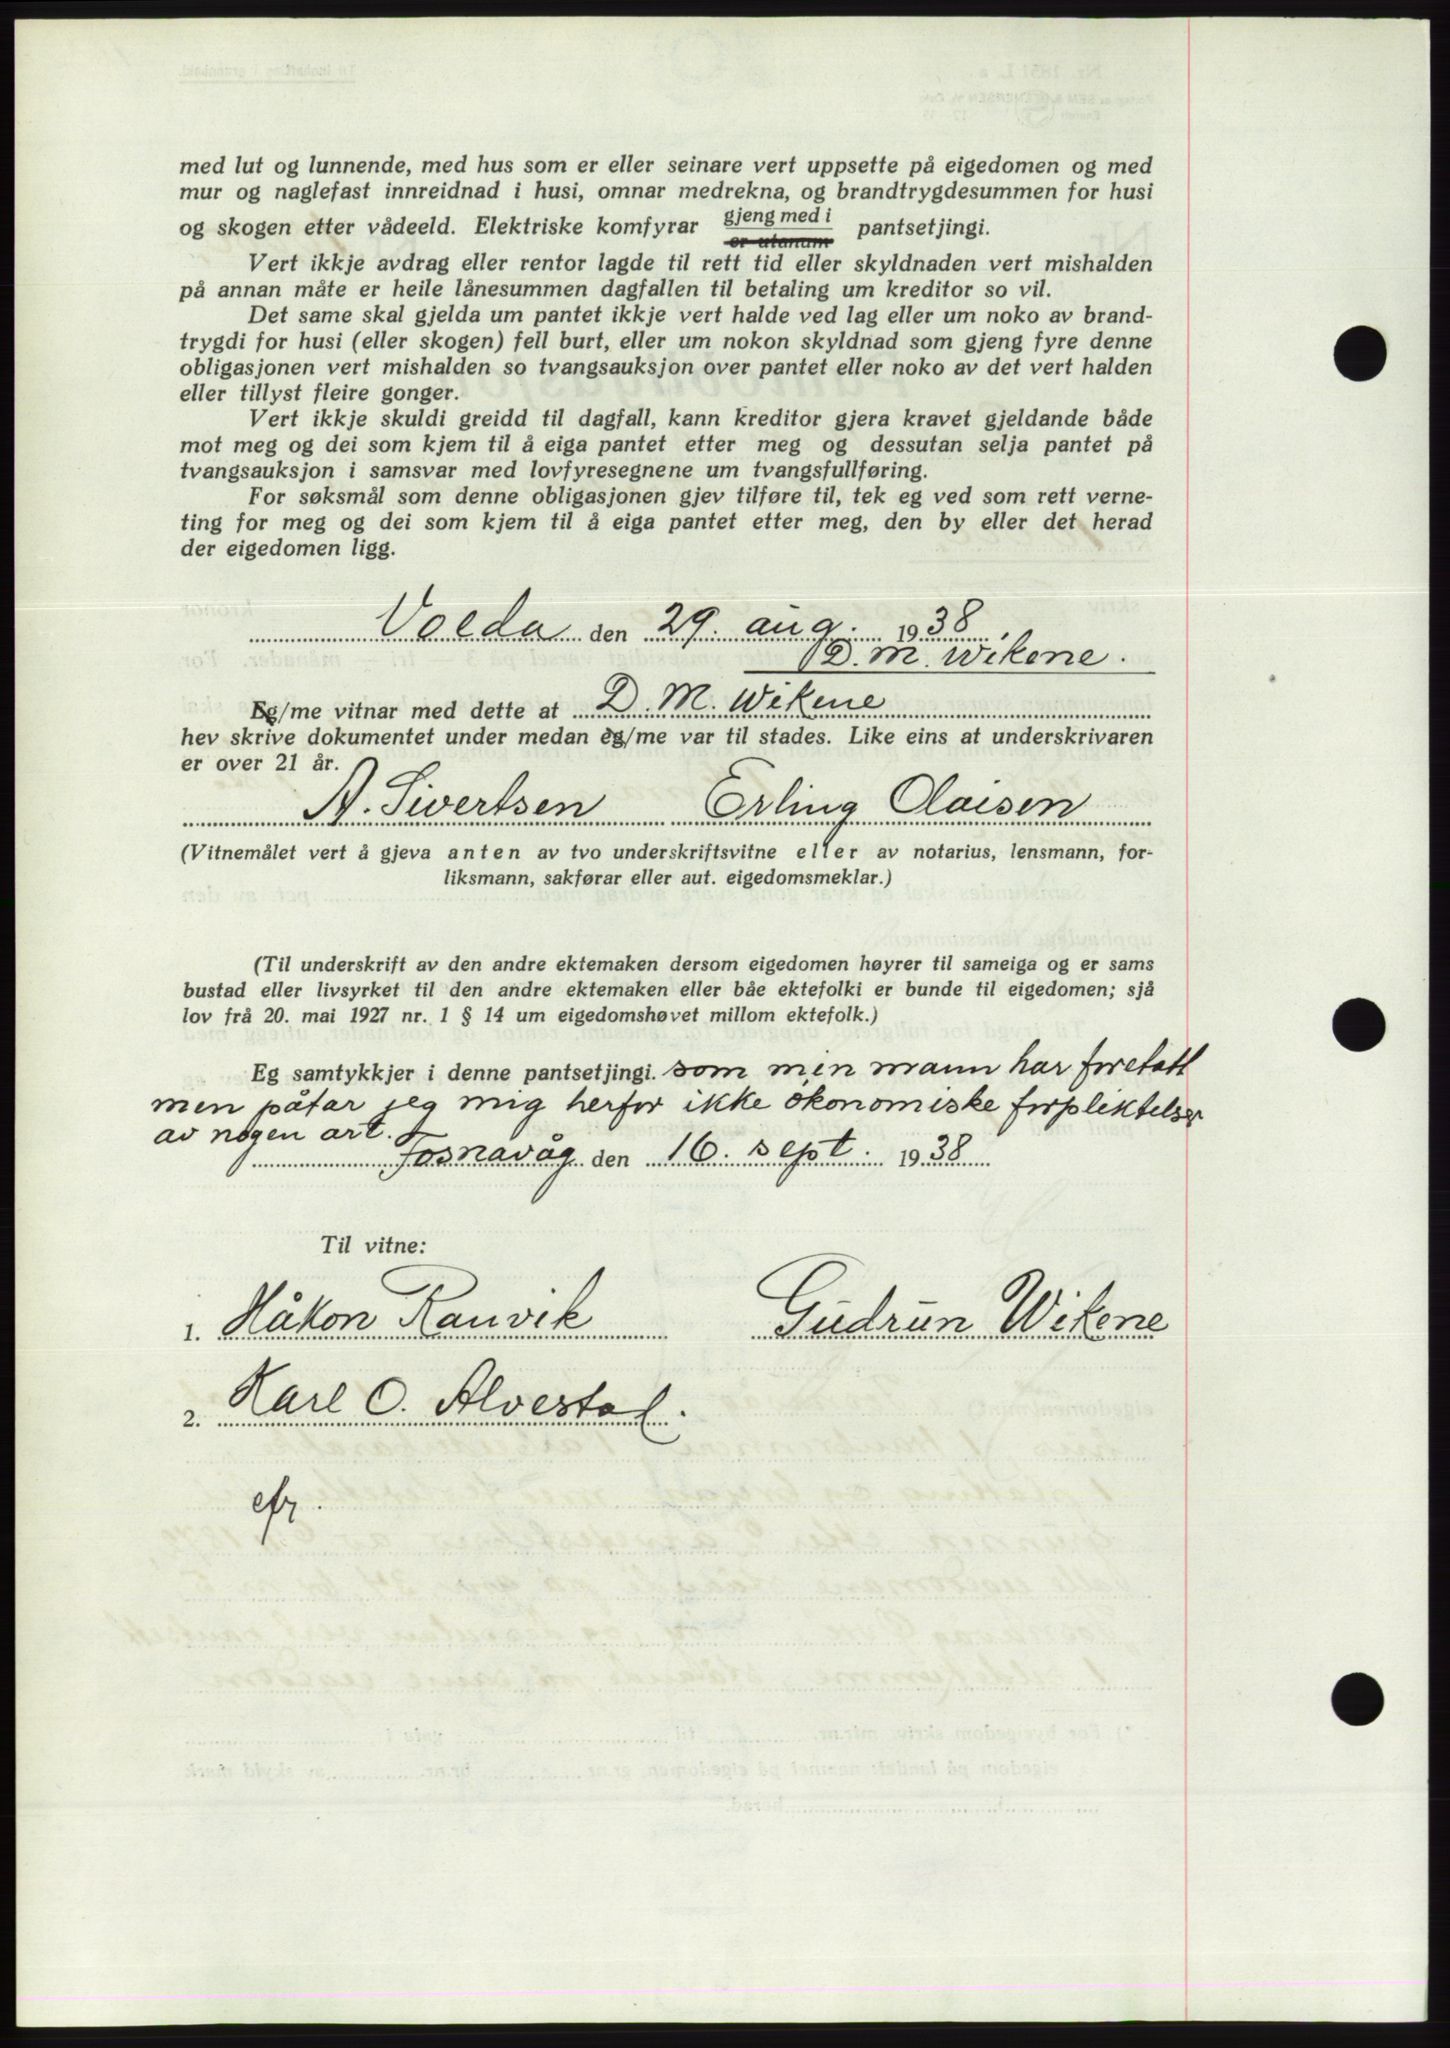 med lut og lunnende, med hus som er eller seinare vert uppsette på eigedomen og med
mur og naglefast innreidnad i husi, omnar medrekna, og brandtrygdesummen for husi
og skogen etter vådeeld. Elektriske komfyrar gjeng med i pantsetjingi.
er utanum
Vert ikkje avdrag eller rentor lagde til rett tid eller skyldnaden vert mishalden
på annan måte er heile lånesummen dagfallen til betaling um kreditor so vil.
Det same skal gjelda um pantet ikkje vert halde ved lag eller um noko av brand-
trygdi for husi (eller skogen) fell burt, eller um nokon skyldnad som gjeng fyre denne
obligasjonen vert mishalden so tvangsauksjon over pantet eller noko av det vert halden
eller tillyst fleire gonger.
Vert ikkje skuldi greidd til dagfall, kann kreditor gjera kravet gjeldande både
mot meg og dei som kjem til å eiga pantet etter meg og dessutan selja pantet på
tvangsauksjon i samsvar med lovfyresegnene um tvangsfullføring.
For søksmål som denne obligasjonen gjev tilføre til, tek eg ved som rett verne-
ting for meg og dei som kjem til å eiga pantet etter meg, den by eller det herad
der eigedomen ligg.
Volda den 29. aug. 1938.
D. M. Wikene.
Eg/me vitnar med dette at D. M. Wikene
hev skrive dokumentet under medan eg/me var til stades. Like eins at underskrivaren
er over 21 år.
A. Sivertsen Erling Olaisen
(Vitnemålet vert å gjeva anten av tvo underskriftsvitne eller av notarius, lensmann, for-
liksmann, sakførar eller aut. eigedomsmeklar.)
(Til underskrift av den andre ektemaken dersom eigedomen høyrer til sameiga og er sams
bustad eller livsyrket til den andre ektemaken eller båe ektefolki er bunde til eigedomen; sjå
lov frå 20. mai 1927 nr. 1 § 14 um eigedomshøvet millom ektefolk.)
Eg samtykkjer i denne pantsetjingi. som min mann har foretatt
men påtar jeg mig herfor ikke økonomiske forpliktelser
av nogen art.
Fosnavåg den 16. sept. 1938
Til vitne:
1. Håkon Ranvik Gudrun Wikene
2. Karl O. Alvestad.
efr.